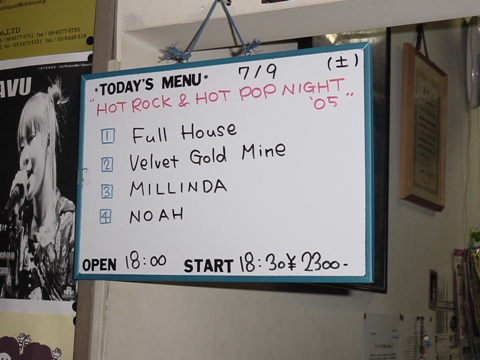 ·TODAY'S MENU· 7/9 (土)
"HOT ROCK & HOT POP NIGHT '05"
1 Full House
2 Velvet Gold Mine
3 MILLINDA
4 NOAH
OPEN 18:00 START 18:30 ¥2300-
AVU